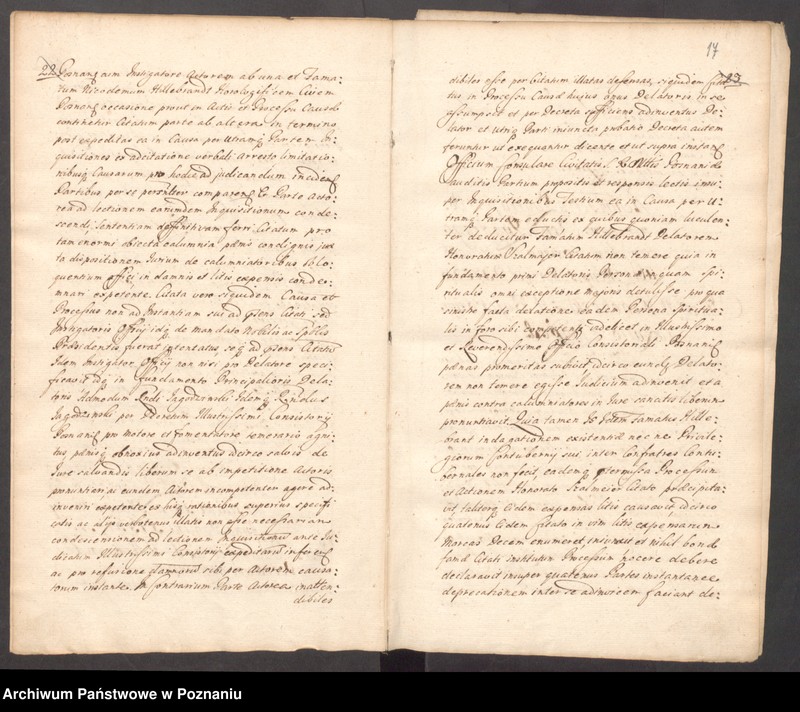 22
Posnanˢ cum Instigatore Actorem ab una et Fama-
tum Nicodemum Hillebrandt Horologifi cem Civem
Posnanˢ occasione prout in Actis et Processu Causæ
continetur Citatum parte ab altera in termino
post expeditas ea in Causa per Utramˢ Partem In-
quisitiones ex adcitatione verbali arresto limitatio-
nibusˢ Causarum pro hodie ad judicandum inciden
Partibus per se personlter comparenˢ Pars Acto-
rea ad lectionem earundem Inquisitionum conde-
scendi, sententiam definitivam ferri Citatum pro
tam enormi objecta calumnia pænis condignis jux
ta dispositionem Jurium de calumniatoribus lo-
quentium affici in damnis et litis expensis condem-
mnari expetente. Citata vero siquidem Causa et
Processus non ad Instantiam sui ad prsens Citati sed
Instigatoris Officij idˢ de mandato Nobilis ac Spblis
Præsidentis fuerat intentatus, seˢ ad prsens Citatus
Idem Instigator Officij non nisi pro Delatore speci-
ficavit idˢ in fundamento Principalioris Dela-
toris Admodum Rndi Jagodzinski Idemˢ Rndus
Jagodzinski per Decretum Illustrissimi Consistorij
Posnaniˢ pro motore et fomentatore temerario agni-
tus pænisˢ obnoxius adinventus idcirco salvis de
Jure salvandis liberum se ab impetitione Actoris
pronuntiari ac eundem Actorem incompetenter agere ad-
inveniri expetente ex hisˢ rationibus superius specifi
catis ac alijs verbotenus illatis non esse necessariam
condescensionem ad lectionem Inquisitionum ante Ju-
dicatum Illustrissimi Consistorij expeditarum inferenˢ
ac pro refusione damnorum sibi per Actorem causa-
torum instante. In contrarium Parte Actorea inatten-
dibiles
17
23
dibiles esse per Citatum illatas defensas, siquidem Cita-
tus in Processu Causæ hujus onus Delatoris in se
assumpsit et per Decreta Officiose adinventus De-
lator et utriˢ Parti injuncta probatio Decreta autem
feruntur ut exequantur dicente et ut supra instanˢ
Officium Consulare Civitatis S. R. Mttis Posnaniæ
auditis Partium propositis et responsis lectis insu-
per Inquisitionibus Testium ea in Causa per U-
tramˢ Partem eductis ex quibus quoniam luculen-
ter deducitur Famatum Hillebrandt Delatorem
Honoratum Szalmajer Citatum non temere quia in
fundamento primi Delatoris Personæ quam spi-
ritualis omni exceptione majoris detulisse proque
sinistre facta delatione eadem Persona spiritua-
lis in foro sibi competenti adelicet in Illustrissimo
et Reverendissimo Offcio Consistoriali Posnaniˢ
pænas promeritas subivit, idcirco eundˢ Delato-
rem non temere egisse Judicium adinvenit et a
pænis contra calumniatores in Jure sancitis liberum
pronuntiavit. Quia tamen Idem Famatus Hille-
brant indagationem existentiæ nec ne Privile-
giorum Contubernij sui inter Confratres Contu-
bernales non fecit eademˢ ptermissa Processum
et Actionem Honorato Szalmeier Citato præcipita-
vit taliterˢ Eidem expensas litis causavit idcirco
quatenus Eidem Citato in vim litis expensarum
Marcas Decem enumeret, injunxit et nihil bonæ
famæ Citati institutum Processum nocere debere
declaravit insuper quatenus Partes instantanee
deprecationem inter se adinvicem faciant de-
Archiwum Państwowe w Poznaniu